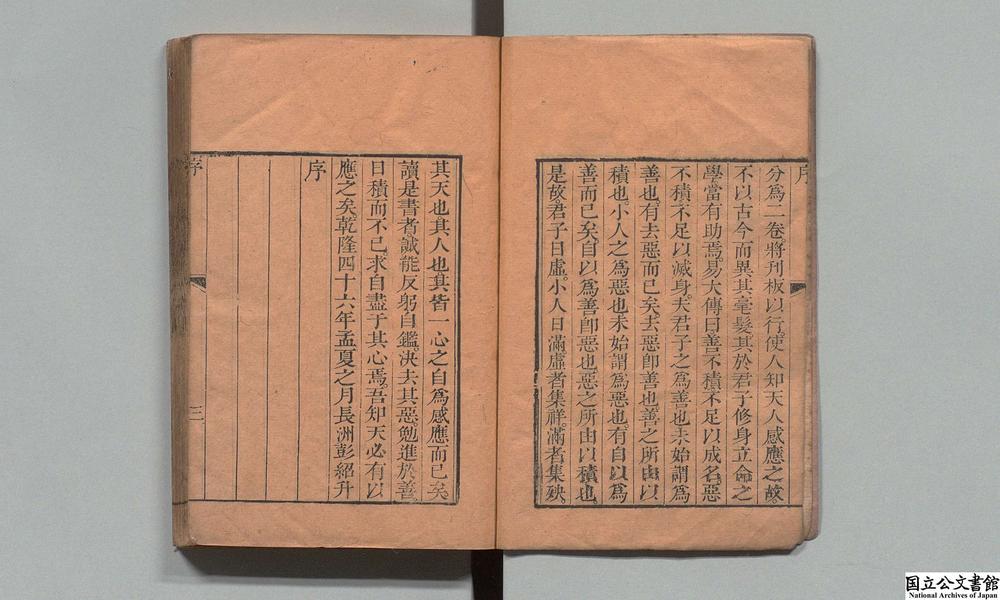 序
分為二卷將刊板以行使人知天人感應之故
不以古今而異其毫髮其於君子修身立命之
學當有助焉易大傳曰善不積不足以成名惡
不積不足以滅身夫君子之為善也未始謂為
善也有去惡而已矣去惡卽善也善之所由以
積也小人之為惡也未始謂為惡也有自以為
善而已矣自以為善卽惡也惡之所由以積也
是故君子日虛小人日滿虛者集祥滿者集殃
其天也其人也其皆一心之自為感應而已矣
讀是書者誠能反躬自鑑決去其惡勉進於善
日積而不已求自盡于其心焉吾知天必有以
應之矣乾隆四十六年孟夏之月長洲彭紹升
序
序
三
国立公文書館
National Archives of Japan